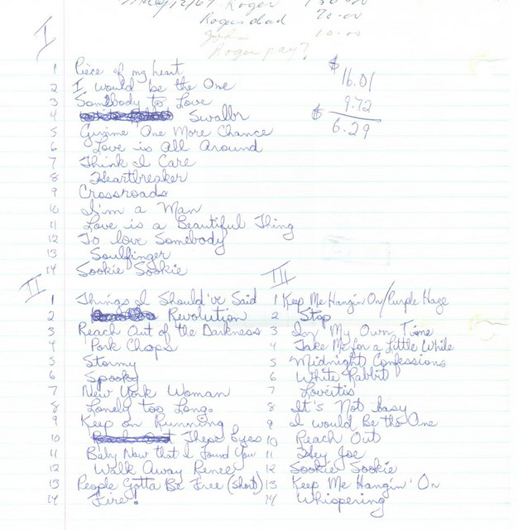 5/12/69 Roger
Rogers dad 20.00
10.00
Roger pay?
I
$ 16.01
9.72
$ 6.29
1 Piece of my heart
2 I would be the One
3 Somebody to Love
4 Swalbr
5 Gimme One More Chance
6 Love is All Around
7 Think I Care
8 Heartbreaker
9 Crossroads
10 I'm a Man
11 Love is a Beautiful Thing
12 To love Somebody
13 Soulfinger
14 Sookie Sookie
II
1 Things I Should've Said
2 Revolution
3 Reach Out of the Darkness
4 Pork Chops
5 Stormy
6 Spooky
7 New York Woman
8 Lonely too Long
9 Keep on Running
10 These Eyes
11 Baby Now that I Found You
12 Walk Away Renee
13 People Gotta Be Free (short)
14 Fire!
III
1 Keep Me Hangin On/Purple Haze
2 Stop
3 In My Own Time
4 Take Me for a Little While
5 Midnight Confessions
6 White Rabbit
7 Loveitis
8 It's Not Easy
9 I would Be the One
10 Reach Out
11 Hey Joe
12 Sookie Sookie
13 Keep Me Hangin' On
14 Whispering